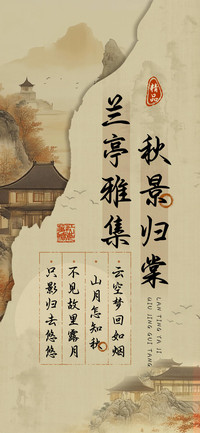 精品
兰亭雅集
秋景归棠
LAN TING YA JI
QIU JING GUI TANG
云空梦回如烟
山月怎知秋
不见故里露月
只影归去悠悠